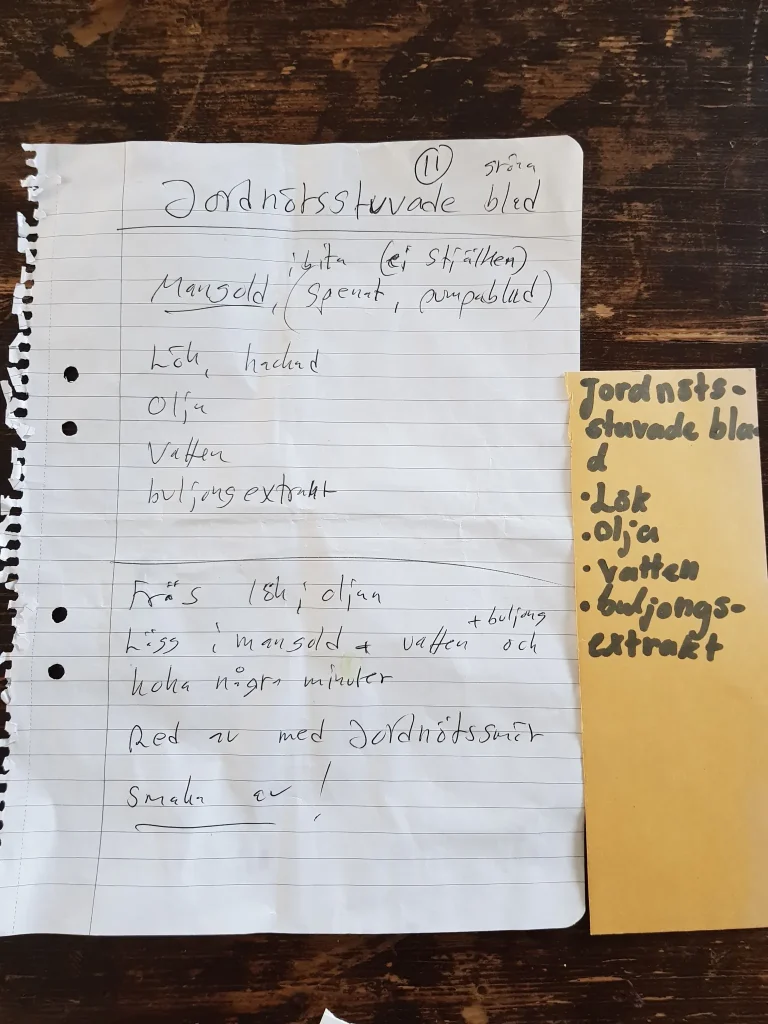 11 gröna
Jordnötsstuvade blad
i bita (ej stjälken)
Mangold, (spenat, pumpablad)
Lök, hackad
Olja
Vatten
buljongextrakt
Fräs lök i oljan
+ buljong
Lägg i mangold + vatten och
koka några minuter
Red av med Jordnötssmör
Smaka av!
Jordnöts-
stuvade bla
d
• Lök
• Olja
• Vatten
• buljongs-
extrakt